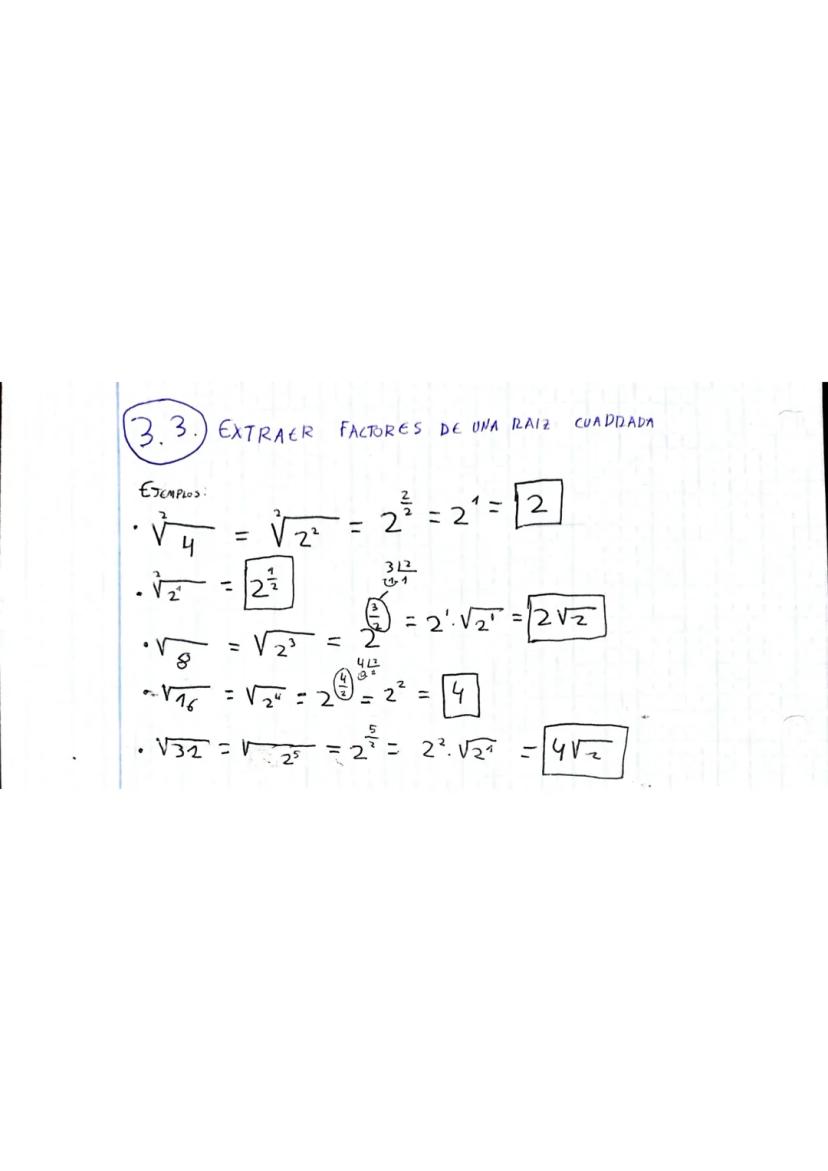 3.3.) EXTRAER FACTORES DE UNA RAIZ CUADRADA
EJEMPLOS:
· ²√4 = ²√2² = 2^(2/2) = 2¹ = 2
· ²√2¹ = 2^(1/2)
3 L2
1 1
· √8 = √2³ = 2^(3/2) = 2¹·√2¹ = 2√2
4 L2
0 2
· √16 = √2⁴ = 2^(4/2) = 2² = 4
· √32 = √2⁵ = 2^(5/2) = 2²·√2¹ = 4√2